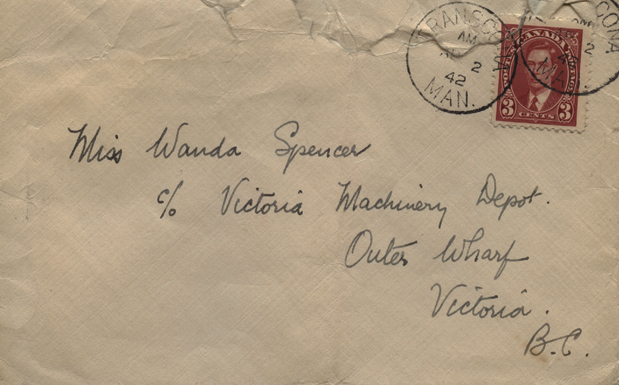 TRANSCONA
AM
2
42
MAN.
CANADA
POSTES POSTAGE
3 CENTS 3
Miss Wanda Spencer
c/o Victoria Machinery Depot.
Outer Wharf
Victoria.
B.C.